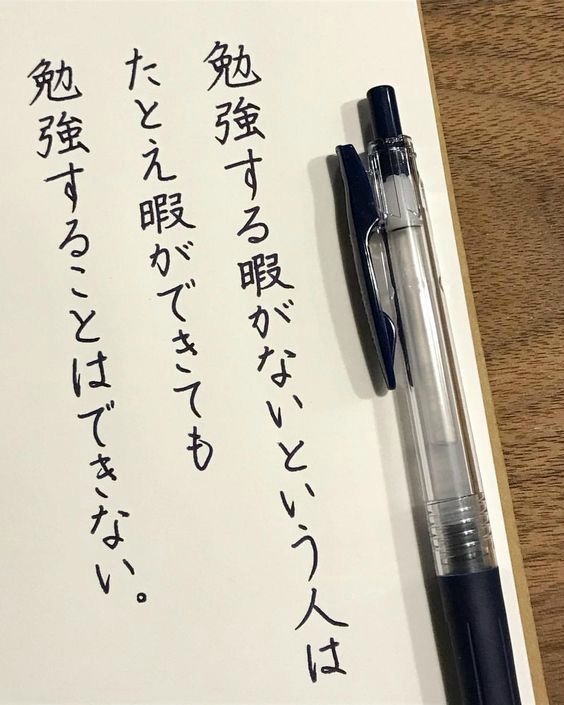 勉強する暇がないという人は
たとえ暇ができても
勉強することはできない。